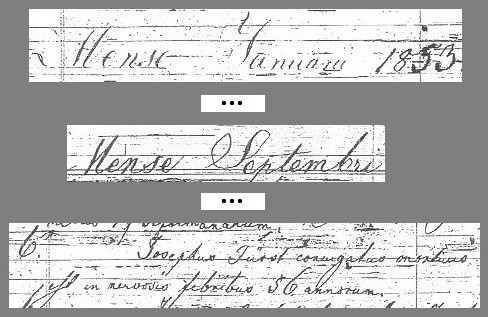 Mense Januarii 1853
...
Mense Septembri
...
septimanarum.
6. Josephus Fürst conjugatus mortuus
est in nervosis febribus 56 annorum.